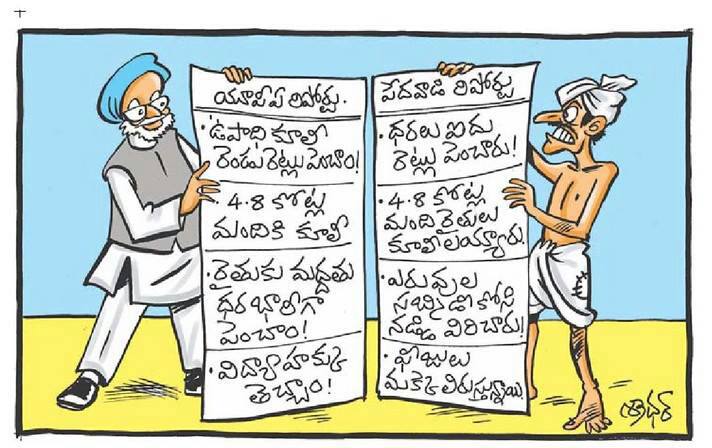 యూపీఏ రిపోర్టు.
· ఉపాధి కూలీ
రెండు రెట్లు పెంచాం!
· 4·8 కోట్ల
మందికి కూలీ
· రైతుకు మద్దతు
ధర భారీగా
పెంచాం!
· విద్యాహక్కు
తెచ్చాం!
పేదవాడి రిపోర్టు
· ధరలు ఐదు
రెట్లు పెంచారు!
· 4·8 కోట్ల
మంది రైతులు
కూలీలయ్యారు.
· ఎరువుల
సబ్సిడీ కోసి
నడ్డి విరిచారు!
· ఫీజులు
మక్కె విరుస్తున్నాయి!
శ్రీధర్